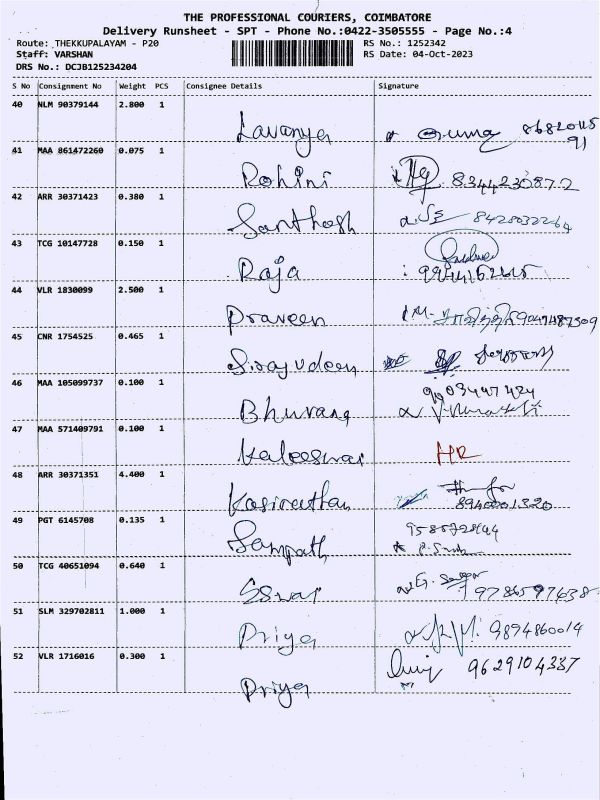 THE PROFESSIONAL COURIERS, COIMBATORE
Delivery Runsheet - SPT - Phone No.:0422-3505555 - Page No.:4
Route: THEKKUPALAYAM - P20 RS No.: 1252342
Staff: VARSHAN RS Date: 04-Oct-2023
DRS No.: DCJB125234204
S No Consignment No Weight PCS Consignee Details Signature
40 NLM 90379144 2.800 1
Lavanya 86820115
91
41 MAA 861472260 0.075 1
Rohini 8344230872
42 ARR 30371423 0.380 1
Santhosh 8428032264
43 TCG 10147728 0.150 1
Raja
44 VLR 1830099 2.500 1
Praveen
45 CNR 1754525 0.465 1
Sirajudeen
46 MAA 105099737 0.100 1
9003447424
Bhuvana
47 MAA 571409791 0.100 1
Kaleeswari HR
48 ARR 30371351 4.400 1
Kasinathan 8940001320
49 PGT 6145708 0.135 1
Sampath
50 TCG 40651094 0.640 1
Eswar 9786597638
51 SLM 329702811 1.000 1
Priya 9894860014
52 VLR 1716016 0.300 1 9629104337
Priya